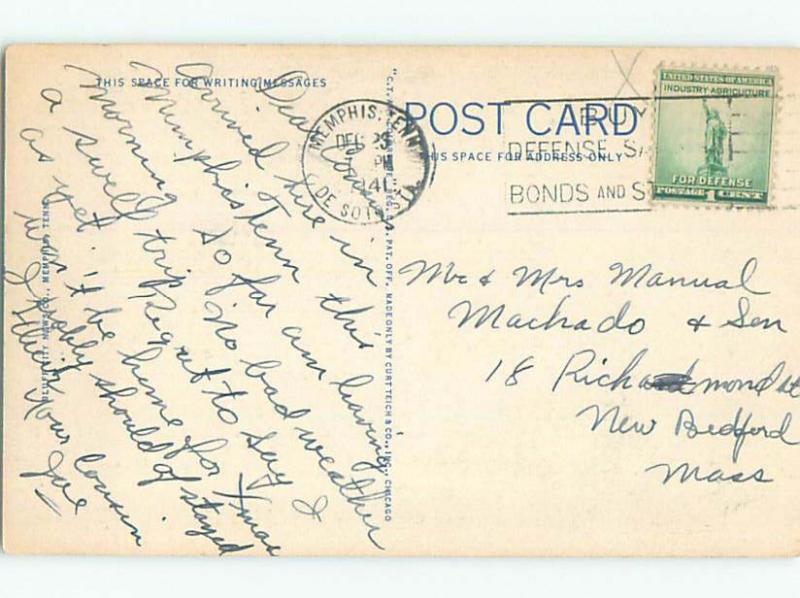 THIS SPACE FOR WRITING MESSAGES
POST CARD
THIS SPACE FOR ADDRESS ONLY
MEMPHIS, TENN
DEC 23
PM
1941
DE SOTO STA.
BUY
DEFENSE SA
BONDS AND S
UNITED STATES OF AMERICA
INDUSTRY AGRICULTURE
FOR DEFENSE
POSTAGE 1 CENT
Dear
Arrived here in this
Memphis Tenn
morning so far am having
a swell trip. No bad weather
as yet. Regret to say I
won't be home for Xmas
I probly should of stayed
Your Cousin
Joe
Mr & Mrs Manual
Machado & Son
18 Richmond st
New Bedford
Mass
REG. U.S. PAT. OFF. MADE ONLY BY CURT TEICH & CO., INC., CHICAGO
NOVELTY CO., MEMPHIS, TENN.